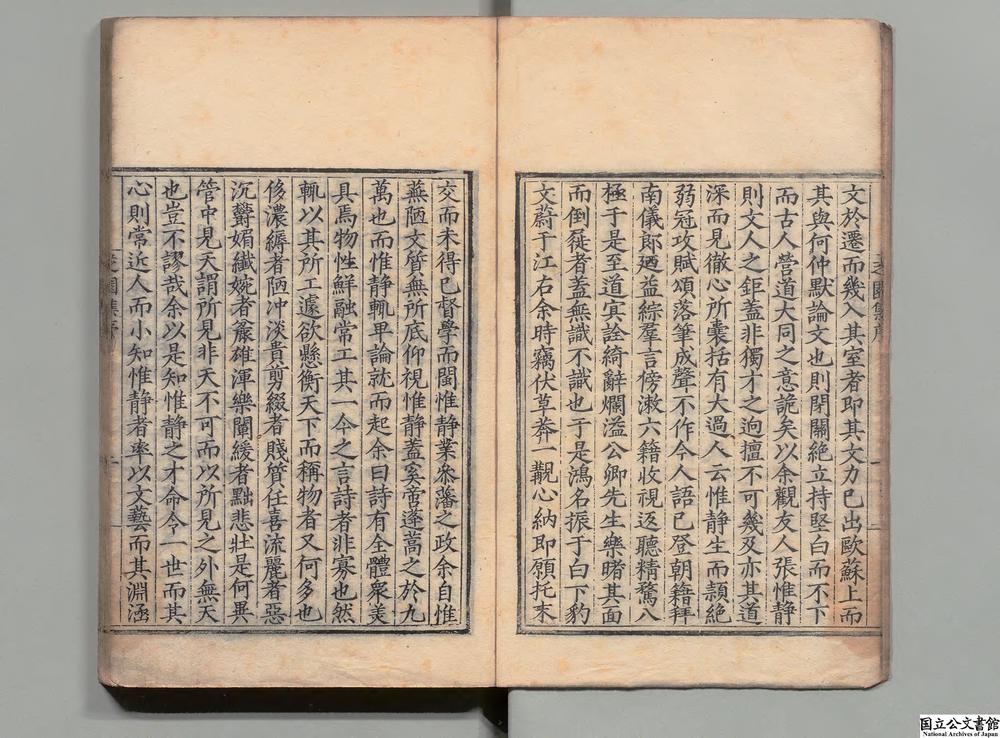 文於遷而幾入其室者即其文力已出歐蘇上而
其與何仲默論文也則閉關絕立持堅白而不下
而古人營道大同之意詭矣以余觀友人張惟静
則文人之鉅蓋非獨才之逈擅不可幾及亦其道
深而見徹心所囊括有大過人云惟静生而穎絶
弱冠攻賦頌落筆成聲不作今人語已登朝籍拜
南儀郎廼益綜羣言傍漱六籍收視返聽精騖八
極于是至道㝠詮綺辭爛溢公卿先生樂睹其面
而倒屣者蓋無識不識也于是鴻名振于白下豹
文蔚于江右余時竊伏草莽一覯心納即願托末
交而未得已督學而閩惟静業叅藩之政余自惟
蕪陋文質無所底仰視惟静蓋奚啻蓬蒿之於九
萬也而惟静輒早論就而起余曰詩有全體衆美
具焉物性鮮融常工其一今之言詩者非寡也然
輒以其所工遽欲懸衡天下而稱物者又何多也
侈濃縟者陋冲淡貴剪綴者賤質任喜流麗者惡
沉鬱媚纖婉者麄雄渾樂闡緩者黜悲壯是何異
管中見天謂所見非天不可而以所見之外無天
也豈不謬哉余以是知惟静之才命今一世而其
心則常近人而小知惟静者率以文藝而其淵涵
芝園集序
一
国立公文書館
National Archives of Japan